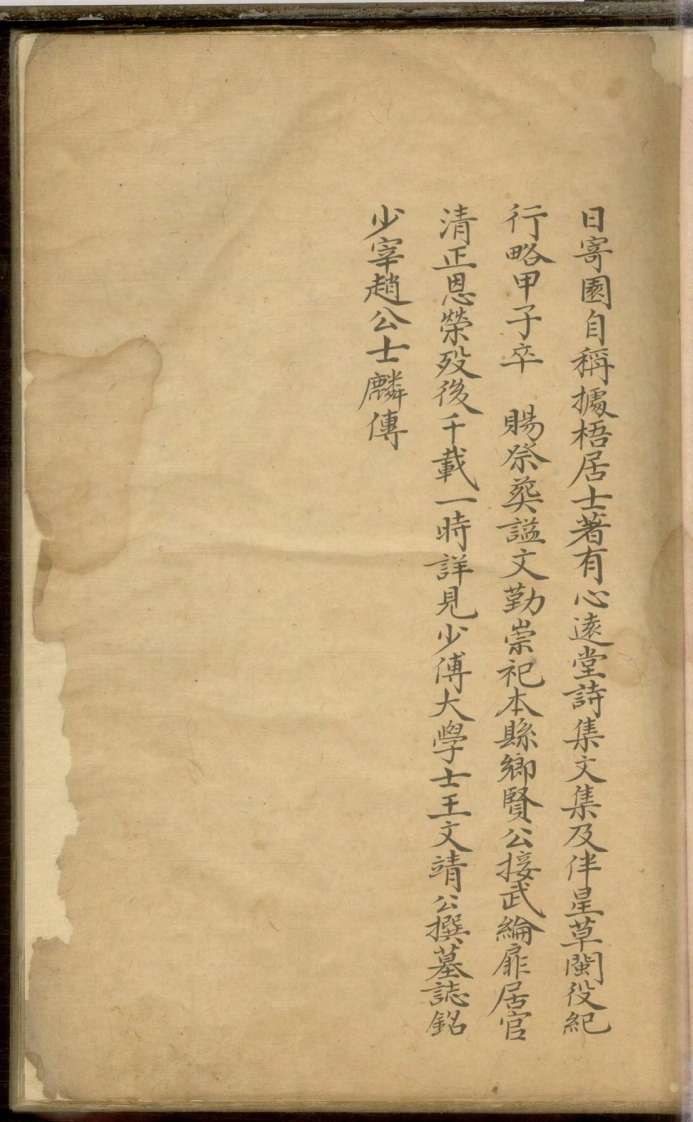 日寄園自稱據梧居士著有心遠堂詩集文集及伴星草閩役紀
行略甲子卒　賜祭葵謚文勤崇祀本縣鄉賢公接武綸扉居官
清正恩榮歿後千載一時詳見少傅大學士王文靖公撰墓誌銘
少宰趙公士麟傳